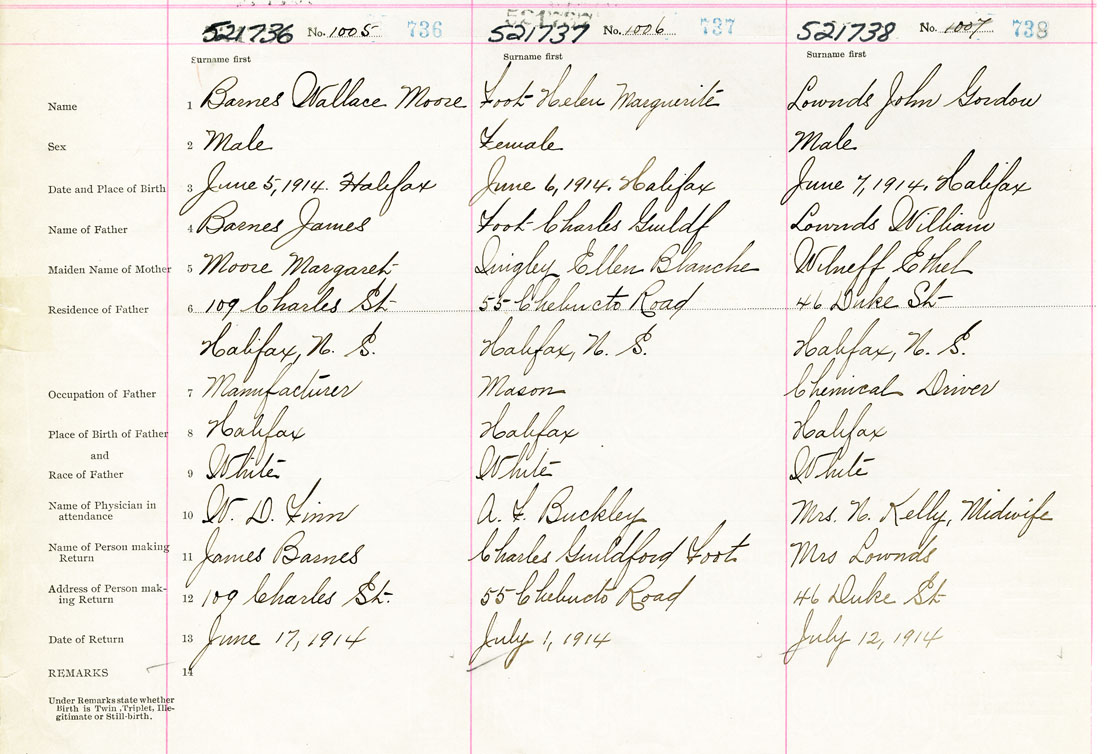 521736 No. 1005 736 521737 No. 1006 737 521738 No. 1007 738
Surname first Surname first Surname first
Name 1 Barnes Wallace Moore Foot Helen Marguerite Lownds John Gordon
Sex 2 Male Female Male
Date and Place of Birth 3 June 5, 1914. Halifax June 6, 1914. Halifax June 7, 1914. Halifax
Name of Father 4 Barnes James Foot Charles Guildf Lownds William
Maiden Name of Mother 5 Moore Margaret Quigley Ellen Blanche Wilneff Ethel
Residence of Father 6 109 Charles St 55 Chebucto Road 46 Duke St
Halifax, N. S. Halifax, N. S. Halifax, N. S.
Occupation of Father 7 Manufacturer Mason Chemical Driver
Place of Birth of Father 8 Halifax Halifax Halifax
and
Race of Father 9 White White White
Name of Physician in
attendance 10 W. D. Finn A. F. Buckley Mrs. N. Kelly, Midwife
Name of Person making
Return 11 James Barnes Charles Guildford Foot Mrs Lownds
Address of Person mak-
ing Return 12 109 Charles St. 55 Chebucto Road 46 Duke St
Date of Return 13 June 17, 1914 July 1, 1914 July 12, 1914
REMARKS 14
Under Remarks state whether
Birth is Twin, Triplet, Ille-
gitimate or Still-birth.